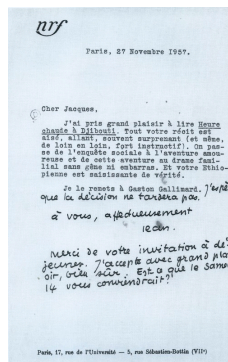 nrf
Paris, 27 Novembre 1957.
Cher Jacques,
J'ai pris grand plaisir à lire Heure
chaude à Djibouti. Tout votre récit est
aisé, allant, souvent surprenant (et même,
de loin en loin, fort instructif). On pas-
se de l'enquête sociale à l'aventure amou-
reuse et de cette aventure au drame fami-
lial sans gêne ni embarras. Et votre Ethio-
pienne est saisissante de vérité.
Je le remets à Gaston Gallimard. J'espè
que la décision ne tardera pas.
à vous, affectueusement
Jean.
Merci de votre invitation à dé
jeuner. J'accepte avec grand plai
sir, bien sûr. Est-ce que le same
14 vous conviendrait?
Paris, 17, rue de l'Université — 5, rue Sébastien-Bottin (VIIe)